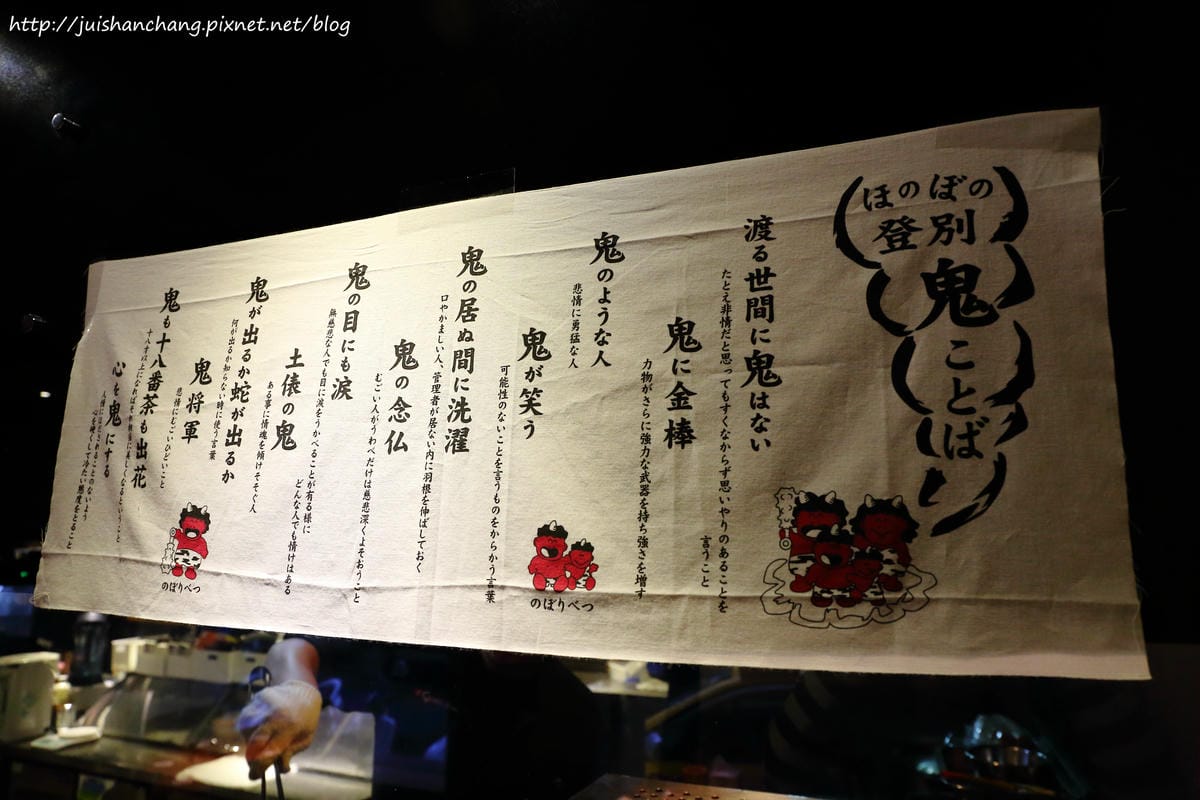 http://juishanchang.pixnet.net/blog
ほのぼの
登別
鬼ことば
渡る世間に鬼はない
たとえ非情だと思ってもすくなからず思いやりのあることを
言うこと
鬼に金棒
力物がさらに強力な武器を持ち強さを増す
鬼のような人
悲情に勇猛な人
鬼が笑う
可能性のないことを言うものをからかう言葉
鬼の居ぬ間に洗濯
口やかましい人、管理者が居ない内に羽根を伸ばしておく
鬼の念仏
むごい人がうわべだけは慈悲深くよそおうこと
鬼の目にも涙
無慈悲な人でも目に涙をうかべることが有る様に
どんな人でも情けはある
土俵の鬼
ある事に情魂を傾けそそぐ人
鬼が出るか蛇が出るか
何が出るか知らない時に使う言葉
鬼将軍
悲情にむごいひどいこと
鬼も十八番茶も出花
心を鬼にする
人情にほだされることのないよう
心を硬くして冷たい態度をとること
のぼりべつ
のぼりべつ